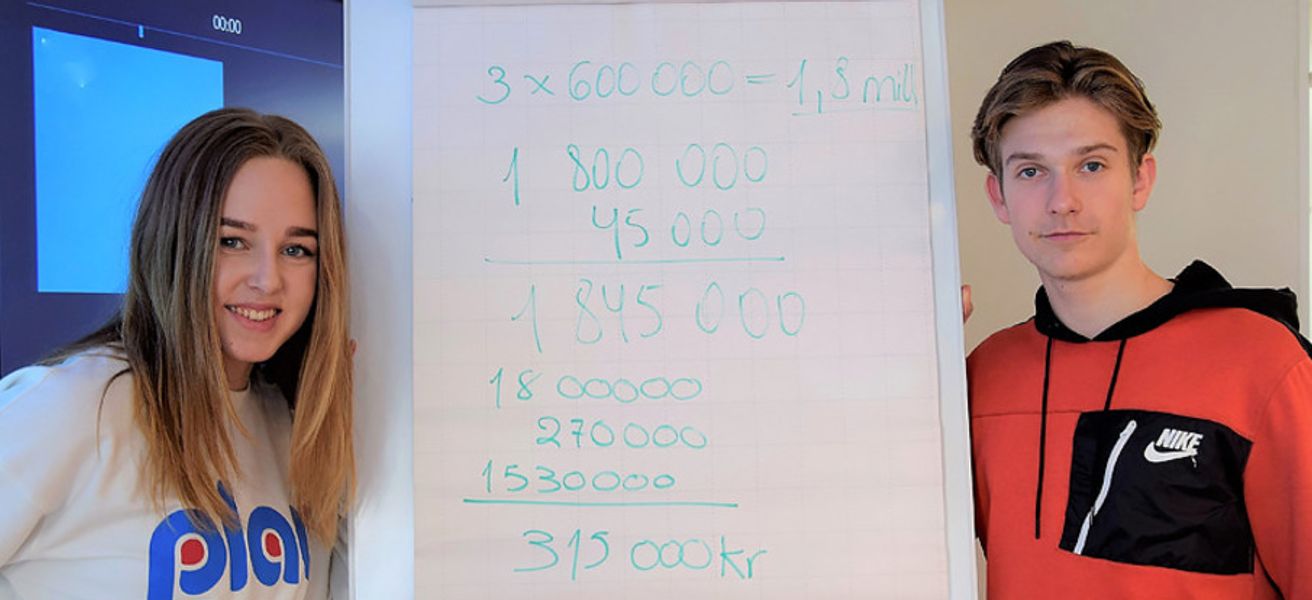 00:00
3 × 600 000 = 1,8 mill
1 800 000
45 000
1 845 000
18 00000
270000
1530000
315 000 kr
pla
NIKE